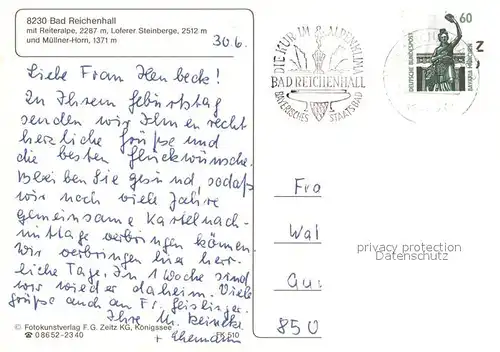 8230 Bad Reichenhall
mit Reiteralpe, 2287 m, Loferer Steinberge, 2512 m
und Müllner-Horn, 1371 m
30.6.
Liebe Frau Henbeck!
Zu Ihrem Geburtstag
senden wir Ihnen recht
herzliche Grüße und
die besten Glückwünsche.
Bleiben Sie gesund, sodaß
wir noch viele Jahre
gemeinsame Kartelnach-
mittage verbringen können.
Wir verbringen hier herr-
liche Tage. In 1 Woche sind
wir wieder daheim. Viele
Grüße auch an Fr. Geislinger.
Ihre M. Reincke
+ Ehemann
© Fotokunstverlag F. G. Zeitz KG, Königssee
☎ 08652-2340
FK 510
DIE KUR IM ALPENKLIMA
BAD REICHENHALL
BAYERISCHES STAATSBAD
60
DEUTSCHE BUNDESPOST
BAVARIA MÜNCHEN
Z
Fra
Wal
privacy protection
Datenschutz
Gu
850